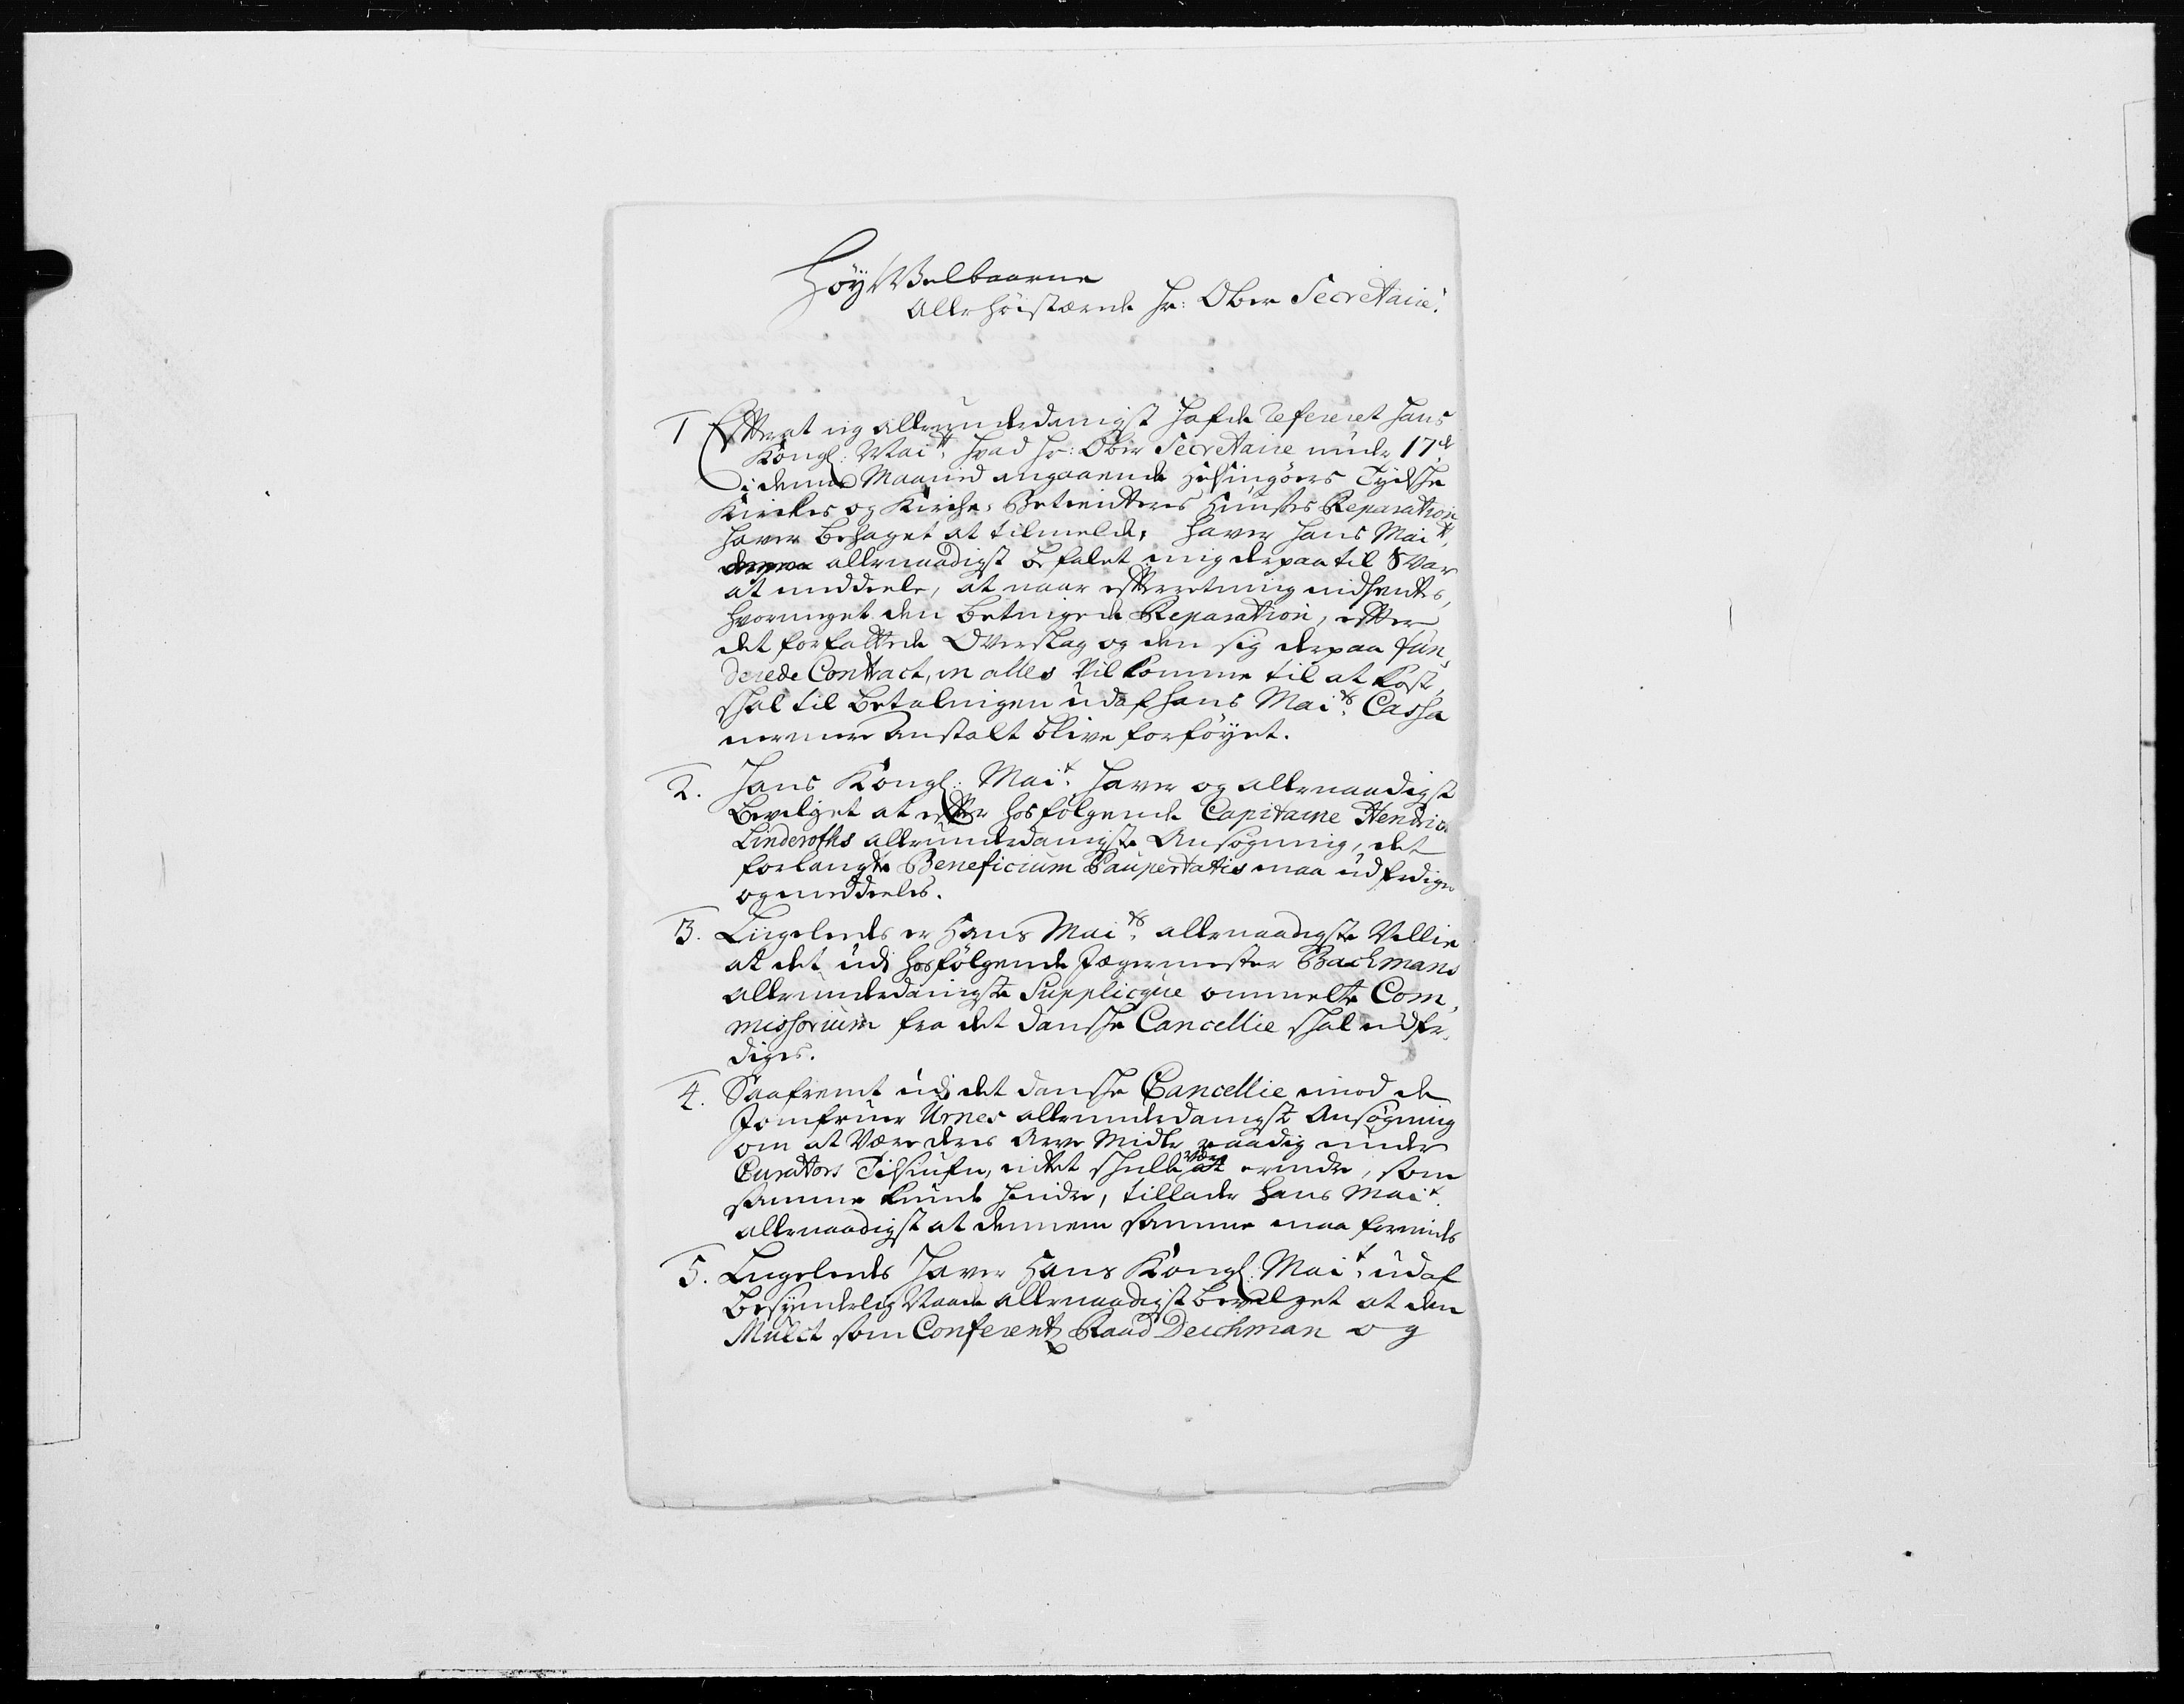 Höy Welbaarne
Allerhöistærede Hr: Ober Secretaire!
1 Effterat ieg allerunderdanigst hafde refereret Hans
Kongl: Maitt: hvad Hr: Ober Secretaire under 17de
i denne Maaned angaaende Helsingöers Tydshe
Kirkes og Kirche-Betienteres Huuses Reparation
haver behaget at tilmelde; haver Hans Maitt:
allernaadigst befalet mig derpaa til Svar
at meddeele, at naar effterretning indhentes,
hvormeget den betingede Reparation, effter
det forfattede Overslag og den sig derpaa fun-
derede Contract, in alles vil komme til at koste,
shal til betalningen udaf Hans Maits: Cassa
nermere Anstalt blive forföyet.
2. Hans Kongl: Mait: haver og allernaadigst
bevilget at effter hosfölgende Capitaine Hendrich
Linderoths allerunderdanigste Ansögning, det
forlangte Beneficium Paupertatis maa udferdiges
og meddeeles.
3. Liigeleedes er Hans Maits: allernaadigste Villie
at det udi hosfölgende Jægermester Bachmans
allerunderdanigste Supplicqve ommelte Com-
missorium fra det danshe Cancellie shal udfer-
diges.
4. Saafremt udi det danshe Cancellie imod de
Jomfruer Urnes allerunderdanigst Ansögning
om at være deres Arve Midler raadig under
Curators Tilsiufn, intet shulle være at erindre, som
samme kunde hindre, tillader Hans Mait:
allernaadigst at dennem samme maa forundes
5. Liigeleedes haver Hans Kongl: Mait: udaf
besynderlig Naade allernaadigst bevilget at den
Mulct som Conferentz Raad Deichman og